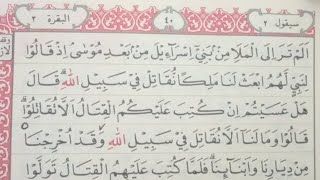 سيقول ٢ ٤٠ البقرة ٢
اَلَمْ تَرَ اِلَى الْمَلَاِ مِنْۢ بَنِيْٓ اِسْرَآءِيْلَ مِنْۢ بَعْدِ مُوْسٰىۘ اِذْ قَالُوْا
لِنَبِيٍّ لَّهُمُ ابْعَثْ لَنَا مَلِكًا نُّقَاتِلْ فِيْ سَبِيْلِ اللّٰهِؕ قَالَ
هَلْ عَسَيْتُمْ اِنْ كُتِبَ عَلَيْكُمُ الْقِتَالُ اَلَّا تُقَاتِلُوْاؕ
قَالُوْا وَمَا لَنَآ اَلَّا نُقَاتِلَ فِيْ سَبِيْلِ اللّٰهِ وَقَدْ اُخْرِجْنَا
مِنْ دِيَارِنَا وَاَبْنَآئِنَاؕ فَلَمَّا كُتِبَ عَلَيْهِمُ الْقِتَالُ تَوَلَّوْا